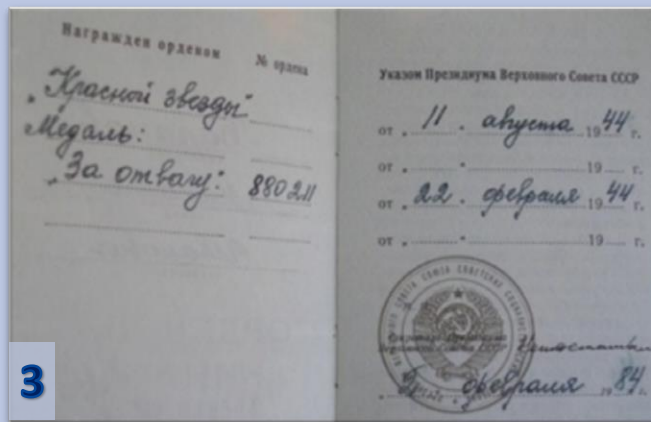 Награжден орденом № ордена
„Красной звезды"
Медаль:
„За отвагу": 880211
Указом Президиума Верховного Совета СССР
от „ 11 " августа 1944 г.
от „ " 19 г.
от „ 22 " февраля 1944 г.
от „ " 19 г.
Верховного Совета СССР
февраля 1984 г.
3